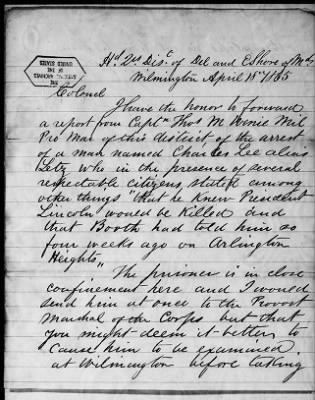 Hd. 2d Disc. of Del and E Shore of Md
Wilmington April 18th /65
Colonel
I have the honor to forward
a report from Captn Thos M. Wenie Mil
Pro Mar of this district, of the arrest
of a man named Charles Lee alias
Letz who in the presence of several
respectable citizens, stated among
other things "that he knew President
Lincoln would be killed and
that Booth had told him so
four weeks ago on Arlington
Heights"
The prisoner is in close
confinement here and I would
send him at once to the Provost
Marshal of the Corps but that
you might deem it better to
cause him to be examined
at Wilmington before taking